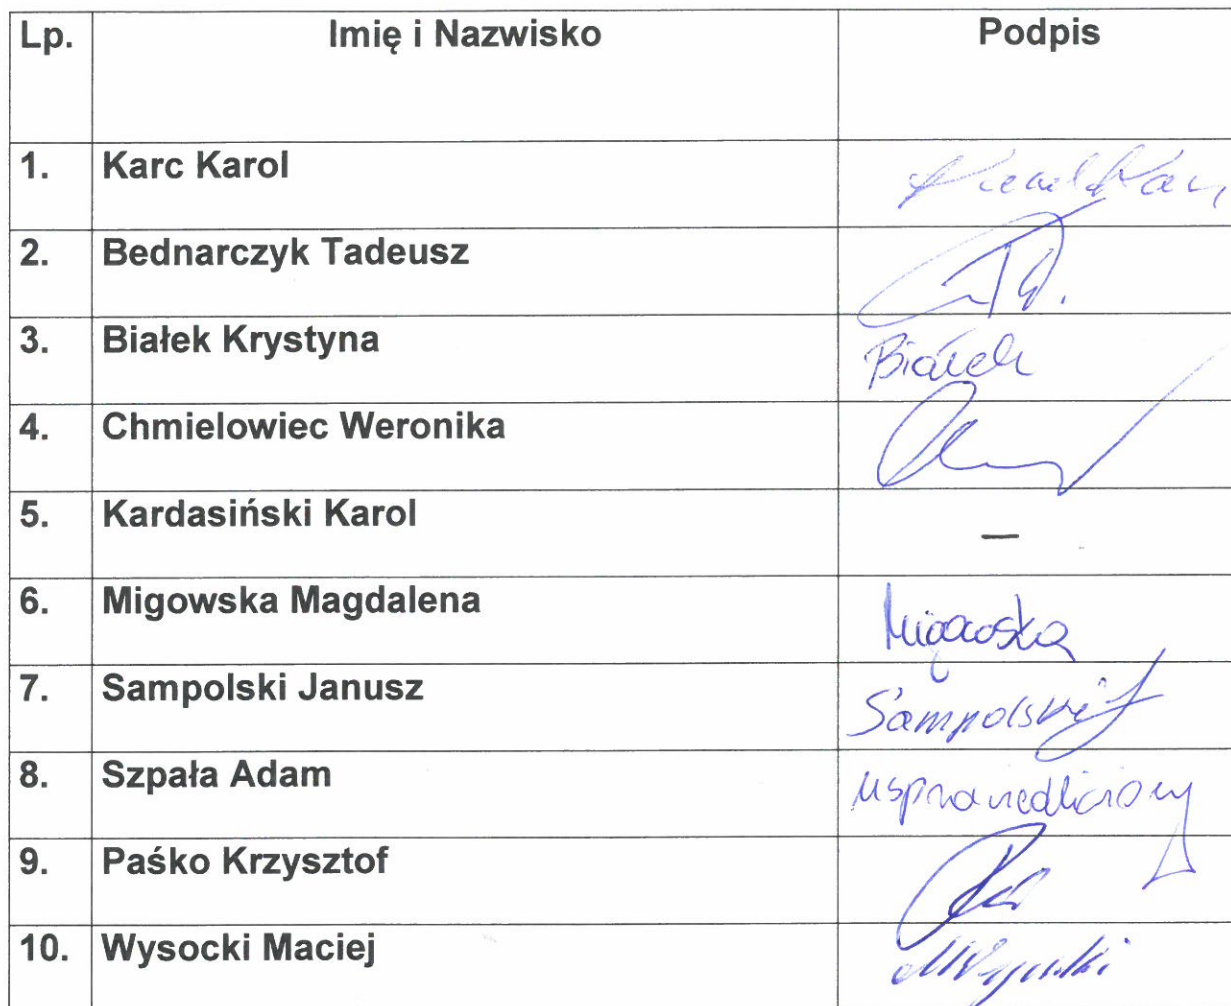 Lp. Imię i Nazwisko Podpis
1. Karc Karol
2. Bednarczyk Tadeusz
3. Białek Krystyna Białek
4. Chmielowiec Weronika
5. Kardasiński Karol —
6. Migowska Magdalena Migowska
7. Sampolski Janusz Sampolski J
8. Szpała Adam usprawiedliwiony
9. Paśko Krzysztof
10. Wysocki Maciej MWysocki